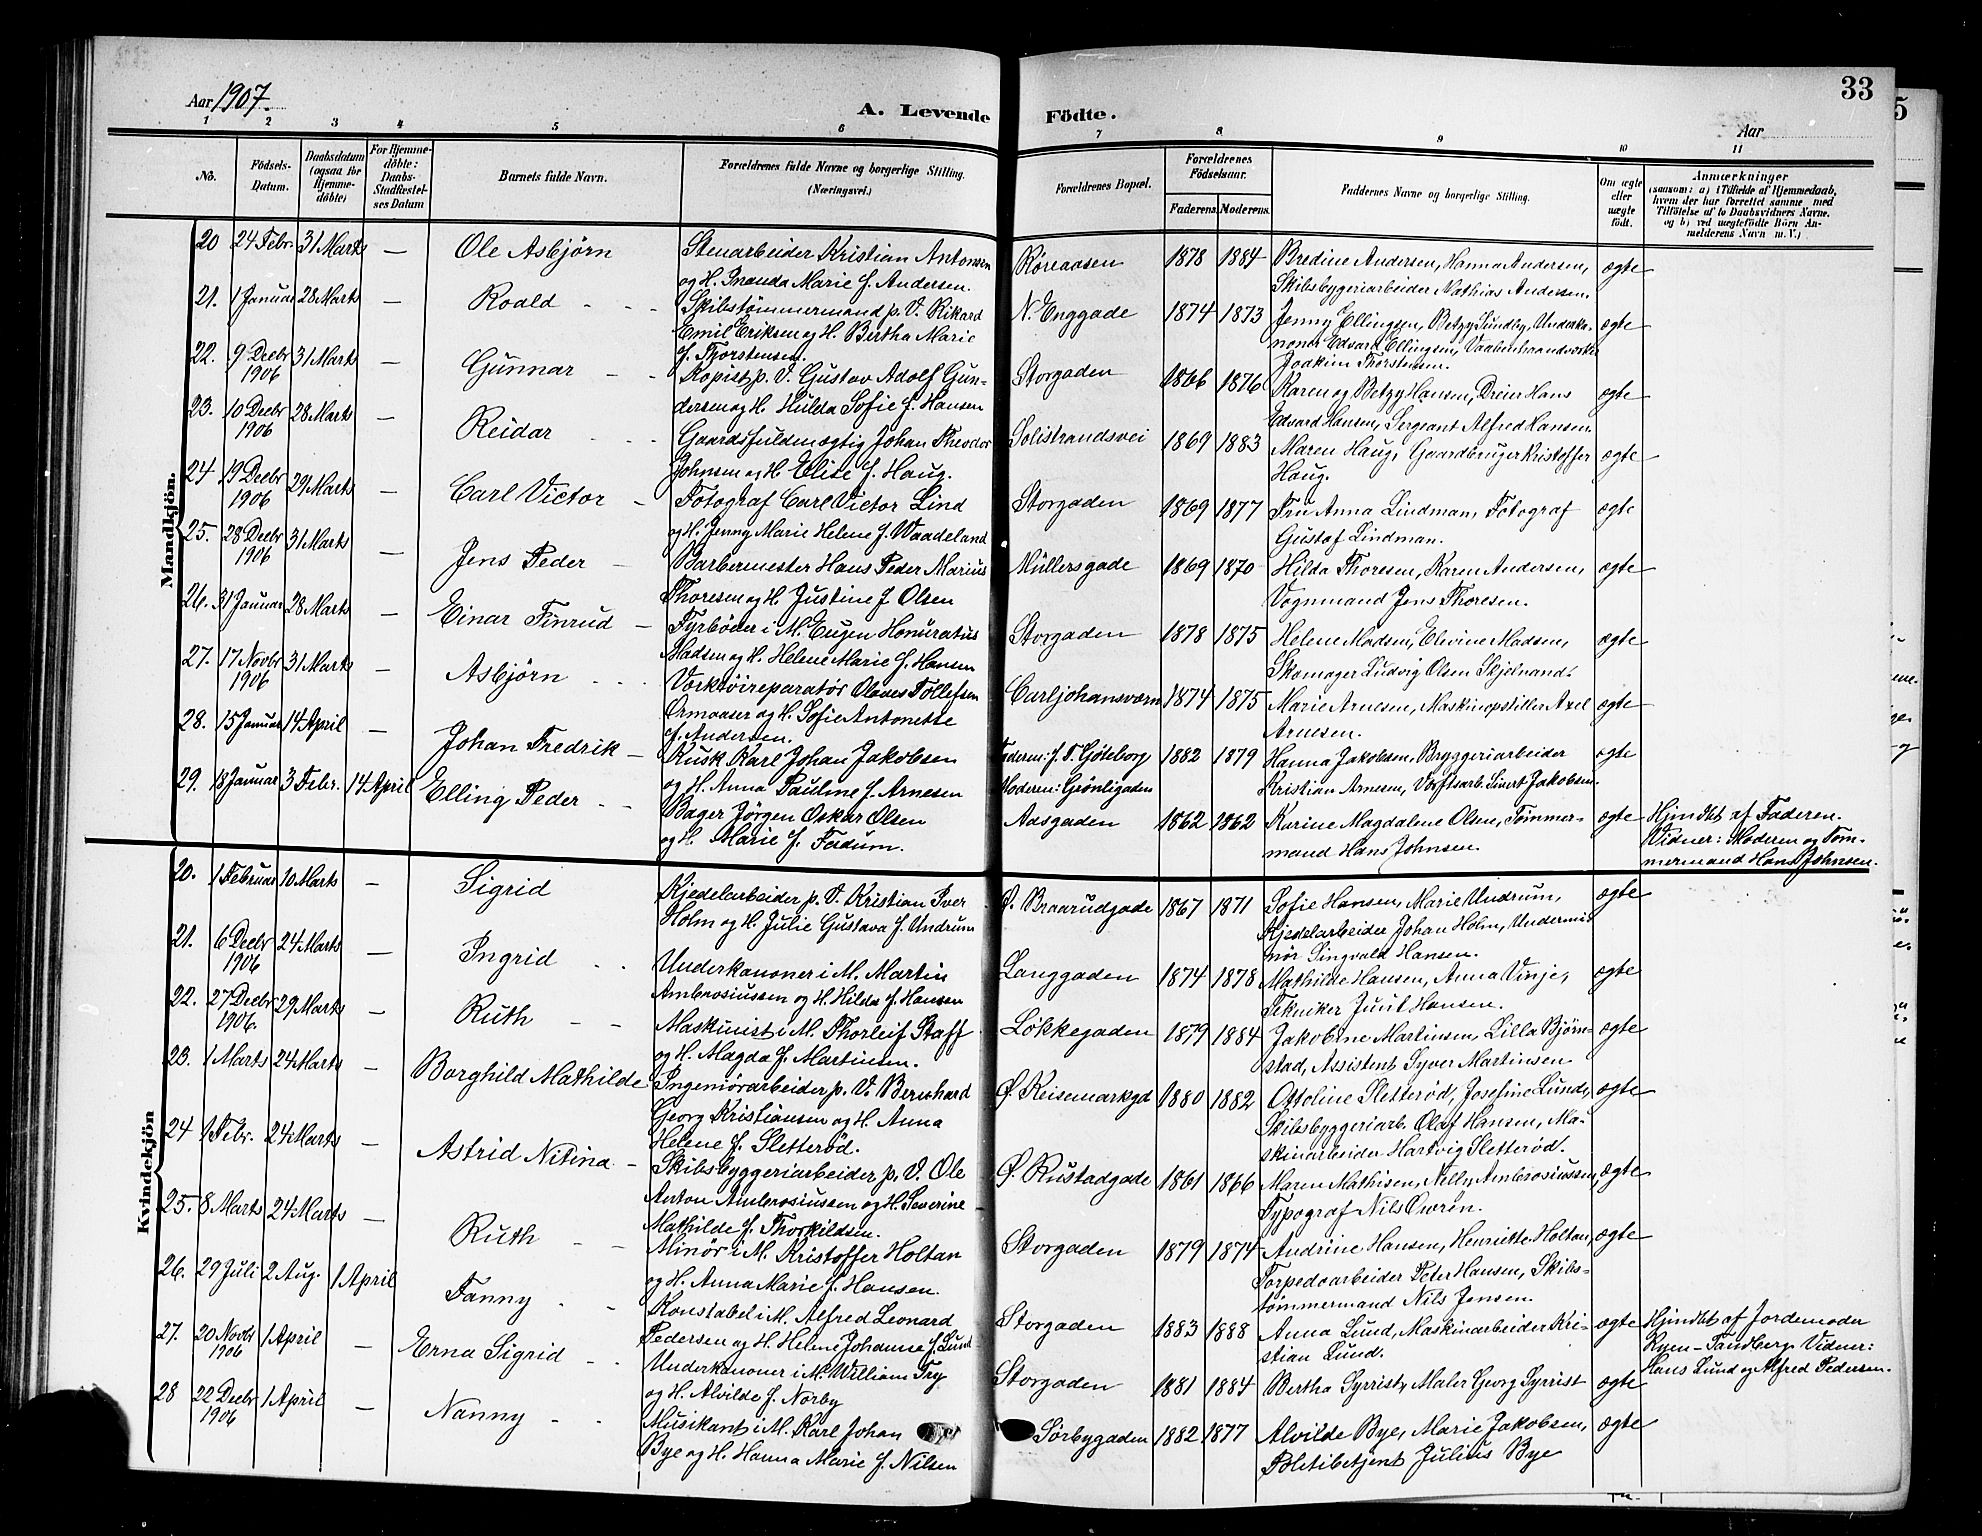 33
Aar 1907.
A. Levende Födte.
Aar
1 2 3 4 5 6 7 8 9 10 11
No.
Födsels-Datum.
Daabsdatum (ogsaa for Hjemme-döbte)
For Hjemme-döbte: Daabs-Stadfæstel-ses Datum
Barnets fulde Navn.
Forældrenes fulde Navne og borgerlige Stilling. (Næringsvei.)
Forældrenes Bopæl.
Forældrenes Födselsaar.
Faderens. Moderens.
Faddernes Navne og borgerlige Stilling.
Om ægte eller uægte födt.
Anmærkninger
(saasom: a) i Tilfælde af Hjemmedaab,
hvem der har forrettet samme med
Tilföielse af to Daabsvidners Navne.
og b) ved uægtefödte Börn An-
melderens Navn m. V.)
Mandkjön.
20 24 Febr. 31 Marts — Ole Asbjörn Stenarbeider Kristian Antonsen Röreaasen 1878 1884 Bredine Andersen, Hanna Andersen, ægte
og H. Marie f. Andersen. Skibsbyggeriarbeider Mathias Andersen.
21. 1 Januar 28 Marts — Roald Skibstömmermand p. V. Rikard N. Enggade 1874 1873 Jenny Ellingsen, Betzy Sundby, Underka- ægte
Emil Eriksen og H. Bertha Marie noner Edvard Ellingsen, Vaabenhaandverker
f. Thorstensen. Joakim Thorstensen.
22. 9 Decbr 1906 31 Marts — Gunnar Kopist p. V. Gustav Adolf Gun- Storgaden 1866 1876 Karen og Betzy Hansen, Dreier Hans ægte
dersen og H. Hulda Sofie f. Hansen Edvard Hansen, Sergeant Alfred Hansen.
23. 10 Decbr 1906 28 Marts — Reidar Gaardsfuldmægtig Johan Theodor Solistrandsvei 1869 1883 Maren Haug, Gaardbruger Kristoffer ægte
Johnsen og H. Elise f. Haug. Haug.
24 19 Decbr 1906 29 Marts — Carl Victor Fotograf Carl Victor Lind Storgaden 1869 1877 Fru Anna Lindman, Fotograf ægte
og H. Jenny Marie Helene f. Vaadeland Gustaf Lindman.
25. 28 Decbr 1906 31 Marts — Jens Peder Barbermester Hans Peder Marius Müllersgade 1869 1870 Hilda Thoresen, Karen Andersen, ægte
Thoresen og H. Justine f. Olsen Vognmand Jens Thoresen.
26. 31 Januar 28 Marts — Einar Finrud Fyrböder i M. Eugen Honoratus Storgaden 1878 1875 Helene Madsen, Elevine Madsen, ægte
Madsen og H. Helene Marie f. Hansen Skomager Ludvig Olsen Skjelnand.
27. 17 Novbr 1906 31 Marts — Asbjörn Verktöireparatör Olaves Tollefsen Carljohansværn 1874 1875 Marie Arnesen, Maskinopstiller Axel ægte
Ormaaser og H. Sofie Antonette Arnesen.
f. Andersen.
28. 15 Januar 14 April — Johan Fredrik Kusk Karl Johan Jakobsen Faderen: f. T. Göteborg 1882 1879 Hanna Jakobsen, Bryggeriarbeider ægte
og H. Anna Pauline f. Arnesen Moderen: Grönligaden Kristian Arnesen, Værftsarb. Sivert Jakobsen.
29. 18 Januar 3 Febr. 14 April Elling Peder Bager Jörgen Oskar Olsen Aasgaden 1862 1862 Karine Magdalene Olsen, Tömmer- ægte Hjmdbt af Faderen.
og H. Marie f. Fadum. mand Hans Johnsen. Vidner: Moderen og Töm-
mermand Hans Johnsen.
Kvindekjön
20. 1 Februar 10 Marts — Sigrid Kjedelarbeider p. V. Kristian Iver Ö. Braarudgade 1867 1871 Sofie Hansen, Marie Undrum, ægte
Holm og H. Julie Gustava f. Undrum Kjedelarbeider Johan Holm, Undermi-
nör Singvald Hansen.
21. 6 Decbr 1906 24 Marts — Ingrid Underkanoner i M. Martin Langgaden 1874 1878 Mathilde Hansen, Anna Vinje, ægte
Ambrosiussen og H. Hilda f. Hansen Tekniker Juul Hansen.
22. 27 Decbr 1906. 29 Marts — Ruth Maskinist i M. Thorleif Staff Løkkegaden 1879 1884 Jakobine Martinsen, Lilla Björn- ægte
og H. Magda f. Martinsen. stad, Assistent Syver Martinsen.
23. 1 Marts 24 Marts — Borghild Mathilde Ingeniörarbeider p. V. Bernhard Ö. Keisemarkgd 1880 1882 Ottoline Sletteröd, Josefine Lund, ægte
Georg Kristiansen og H. Anna Skibsbyggeriarb. Olaf Hansen, Ma-
Helene f. Sletteröd. skinarbeider Hartvig Sletteröd.
24 1 Febr. 24 Marts — Astrid Nitina Skibsbyggeriarbeider p. V. Ole Ö. Rustadgade 1861 1866 Maren Mathisen, Nelly Ambrosiussen, ægte
Anton Ambrosiussen og H. Severine Typograf Nils Qvern.
Mathilde f. Thorkildsen.
25. 8 Marts 24 Marts — Ruth Minör i M. Kristoffer Holtan Storgaden 1879 1874 Andrine Hansen, Henriette Holtan, ægte
og H. Anna Marie f. Hansen. Torpedoarbeider Peter Hansen, Skibs-
tömmermand Nils Jensen.
26. 29 Juli 2 Aug. 1 April Fanny Konstabel i M. Alfred Leonard Storgaden 1883 1888 Anna Lund, Maskinarbeider Kri- ægte Hjmdbt af Jordemoder
Pedersen og H. Helene Johanne f. Lund stian Lund. Ryen-Tandberg. Vidner:
Hans Lund og Alfred Pedersen.
27. 20 Novbr 1906 1 April — Erna Sigrid Underkanoner i M. William Fry Storgaden 1881 1884 Bertha Syrrist, Maler Georg Syrrist ægte
og H. Alvilde f. Norby
28 22 Decbr 1906 1 April — Nanny Musikant i M. Karl Johan Sörbygaden 1882 1877 Alvilde Bye, Marie Jakobsen, ægte
Bye og H. Hanna Marie f. Nilsen Politibetjent Julius Bye